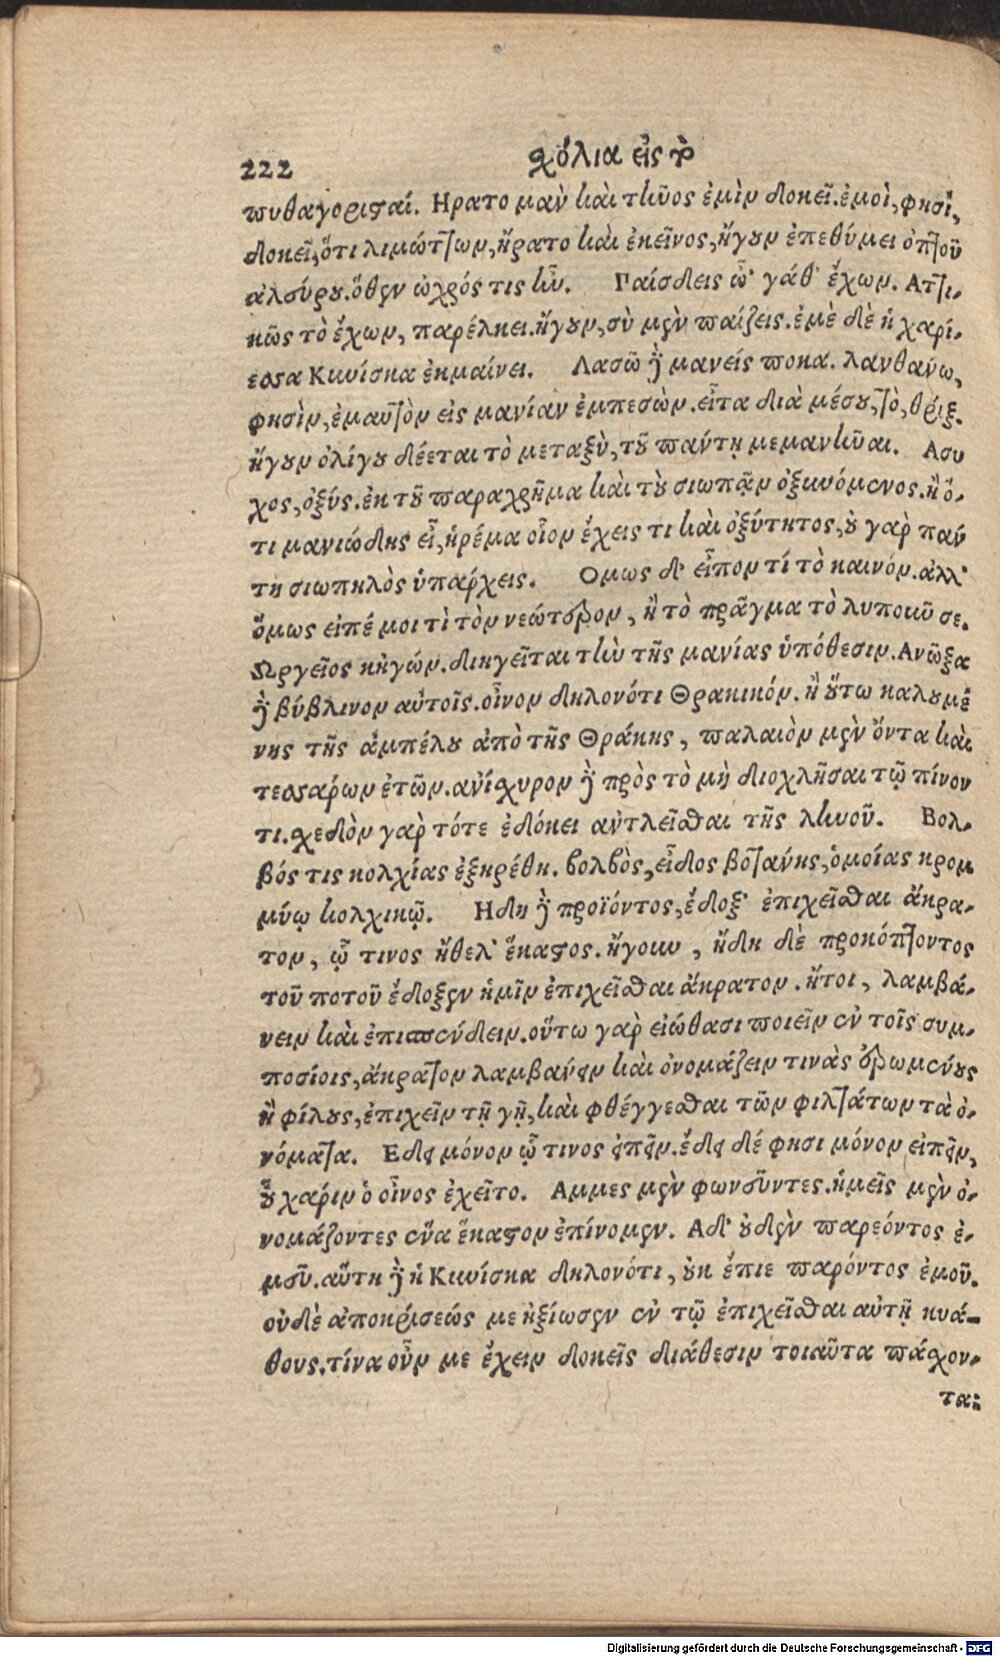 222 σχόλια εἰς τὸ
πυθαγορισταί. Ηρατο μὰν καὶ τῆνος ἐμὶν δοκεῖ. ἐμοὶ, φησὶ,
δοκεῖ, ὅτι λιμώττων, ἤρατο καὶ ἐκεῖνος, ἤγουν ἐπεθύμει ὀπτοῦ
ἀλεύρου. ὅθεν ὠχρός τις ἦν. Παίσδεις ὦ' γάθ' ἔχων. Ατ]ι-
κῶς τὸ ἔχων, παρέλκει. ἤγουν, σὺ μὲν παίζεις. ἐμὲ δὲ ἡ χαρί-
εσσα Κυνίσκα ἐκμαίνει. Λασῶ δὲ μανείς ποκα. λανθάνω,
φησὶν, ἐμαυτὸν εἰς μανίαν ἐμπεσών. εἶτα διὰ μέσου, τὸ, θρὶξ.
ἤγουν ὀλίγου δέεται τὸ μεταξὺ, τοῦ πάντῃ μεμανῆναι. Ασυ
χος, ὀξύς. ἐκ τοῦ παραχρῆμα καὶ τοῦ σιωπᾷν ὀξυνόμενος. ἢ ὅ-
τι μανιώδης εἶ, ἠρέμα οἷον ἔχεις τι καὶ ὀξύτητος, οὐ γὰρ παν
τη σιωπηλὸς ὑπάρχεις. Ομως δ' εἶπον τί τὸ καινόν. ἀλλ'
ὅμως εἰπέ μοι τὶ τὸν νεώτερον, ἢ τὸ πρᾶγμα τὸ λυποῦν σε.
Ωργεῖος κἠγών. διηγεῖται τὴν τῆς μανίας ὑπόθεσιν. Ανῶξα
δὲ βύβλινον αὐτοῖς. οἶνον δηλονότι Θρακικόν. ἢ οὕτω καλουμέ
νης τῆς ἀμπέλου ἀπὸ τῆς Θράκης, παλαιὸν μὲν ὄντα καὶ
τεσσάρων ἐτῶν. ἀνίσχυρον δὲ πρὸς τὸ μὴ διοχλῆσαι τῷ πίνον
τι. σχεδὸν γὰρ τότε ἐδόκει ἀντλεῖσθαι τῆς ληνοῦ. Βολ-
βός τις κολχίας ἐξῃρέθη. βολβὸς, εἶδος βοτάνης, ὁμοίας κρομ
μύῳ κολχικῷ. Ηδη δὲ προϊόντος, ἔδοξ' ἐπιχεῖσθαι ἄκρα-
τον, ᾧ τινος ἤθελ' ἕκαστος. ἤγουν, ἤδη δὲ προκόπτοντος
τοῦ ποτοῦ ἔδοξεν ἡμῖν ἐπιχεῖσθαι ἄκρατον. ἤτοι, λαμβά-
νειν καὶ ἐπισπένδειν. οὕτω γὰρ εἰώθασι ποιεῖν ἐν τοῖς συμ-
ποσίοις, ἄκρατον λαμβάνειν καὶ ὀνομάζειν τινὰς ἐρωμένους
ἢ φίλους, ἐπιχεῖν τῇ γῇ, καὶ φθέγγεσθαι τῶν φιλτάτων τὰ ὀ-
νόματα. Εδει μόνον ᾧ τινος εἰπεῖν. ἔδει δέ φησι μόνον εἰπεῖν,
οὗ χάριν ὁ οἶνος ἐχεῖτο. Αμμες μὲν φωνεῦντες. ἡμεῖς μὲν ὀ-
νομάζοντες ἕνα ἕκαστον ἐπίνομεν. Αδ' οὐδὲν παρεόντος ἐ-
μεῦ. αὕτη δὲ ἡ Κυνίσκα δηλονότι, οὐκ ἔπιε παρόντος ἐμοῦ.
οὐδὲ ἀποκρίσεώς με ἠξίωσεν ἐν τῷ ἐπιχεῖσθαι αὐτῇ κυά-
θους. τίνα οὖν με ἔχειν δοκεῖς διάθεσιν τοιαῦτα πάσχον-
τα;
Digitalisierung gefördert durch die Deutsche Forschungsgemeinschaft - DFG